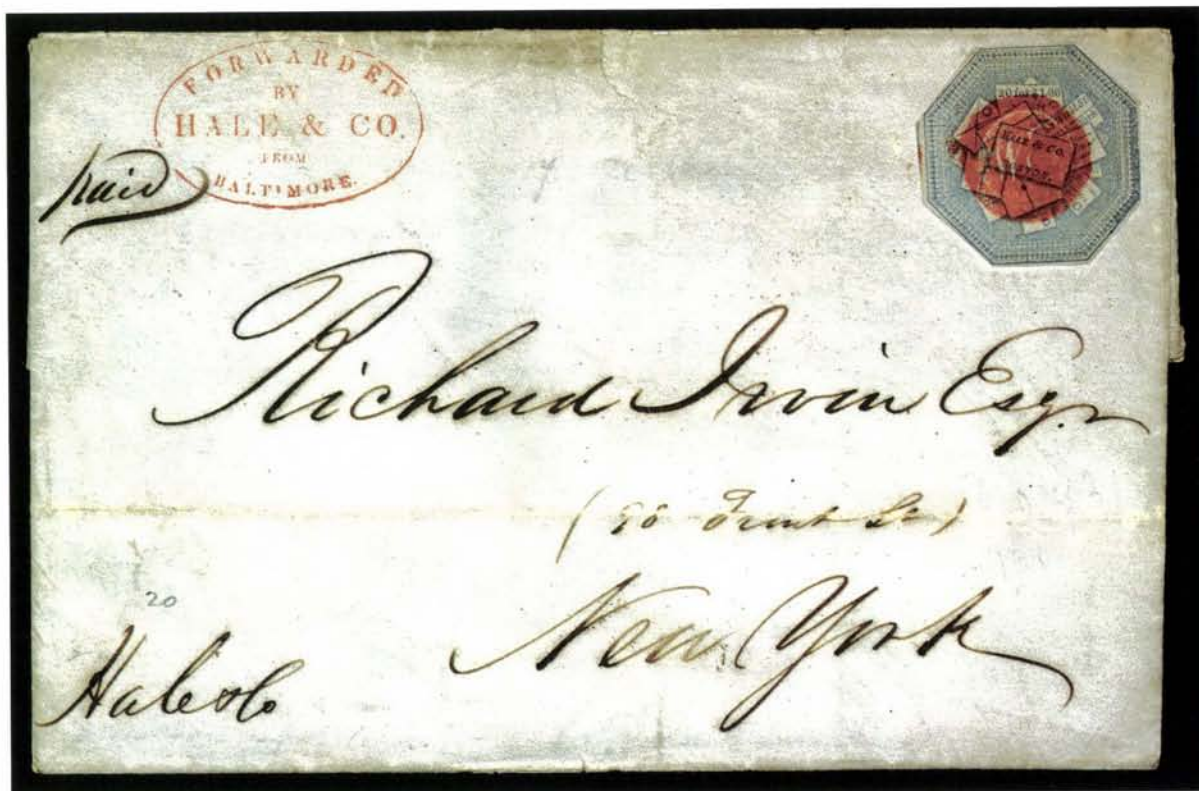 FORWARDED
BY
HALE & CO.
FROM
BALTIMORE.
paid
20 for $1.00
HALE & Co.
BOSTON.
Richard Irvin Esqr
Front St)
New York
20
Hale & Co